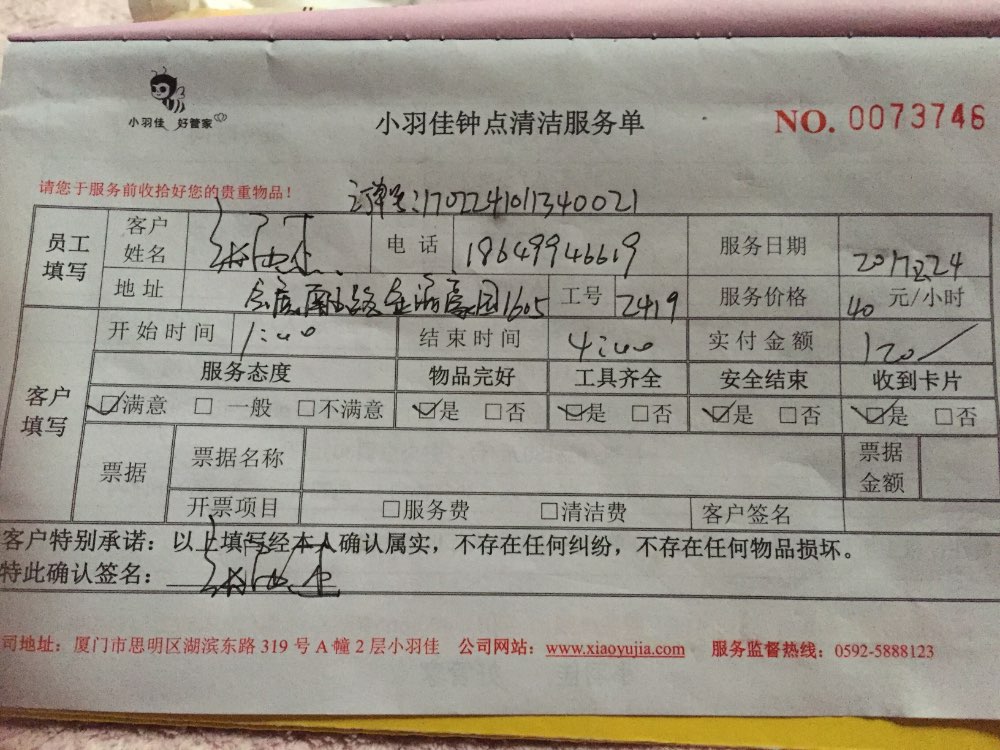 小羽佳 好管家
小羽佳钟点清洁服务单
NO. 0073746
请您于服务前收拾好您的贵重物品！
订单号：170224101340021
员工填写
客户姓名
电话 18649946619
服务日期
地址 1605
工号 2419
服务价格 40 元/小时
客户填写
开始时间 1:00
结束时间 4:00
实付金额 120/
服务态度 物品完好 工具齐全 安全结束 收到卡片
☑满意 □一般 □不满意 ☑是 □否 ☑是 □否 ☑是 □否 ☑是 □否
票据
票据名称
票据金额
开票项目 □服务费 □清洁费 客户签名
客户特别承诺：以上填写经本人确认属实，不存在任何纠纷，不存在任何物品损坏。
特此确认签名：
司地址：厦门市思明区湖滨东路 319 号 A 幢 2 层小羽佳 公司网站：www.xiaoyujia.com 服务监督热线：0592-5888123